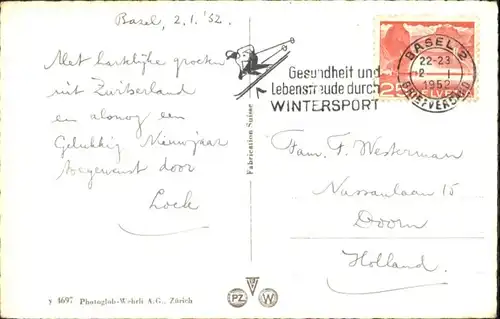 Basel, 2.1.'52.
Met hartelijke groeten
uit Zwitserland
en alsnog een
Gelukkig Nieuwjaar
toegewenst door
Loek
Fabrication Suisse
Gesundheit und
Lebensfreude durch
WINTERSPORT
BASEL 2
22-23
2. I
1952
BRIEFVERSAND
25
HELVETIA
Fam. F. Westerman
Nassaulaan 15
Doorn
Holland.
y 4697 Photoglob-Wehrli A.G., Zürich
PZ
W